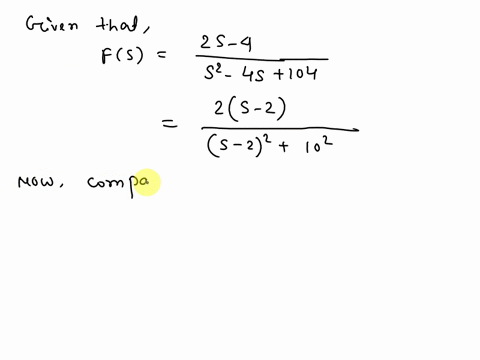 Given that,
F(S) = 2S-4 / S² - 4S + 104
= 2(S-2) / (S-2)² + 10²
Now, compa